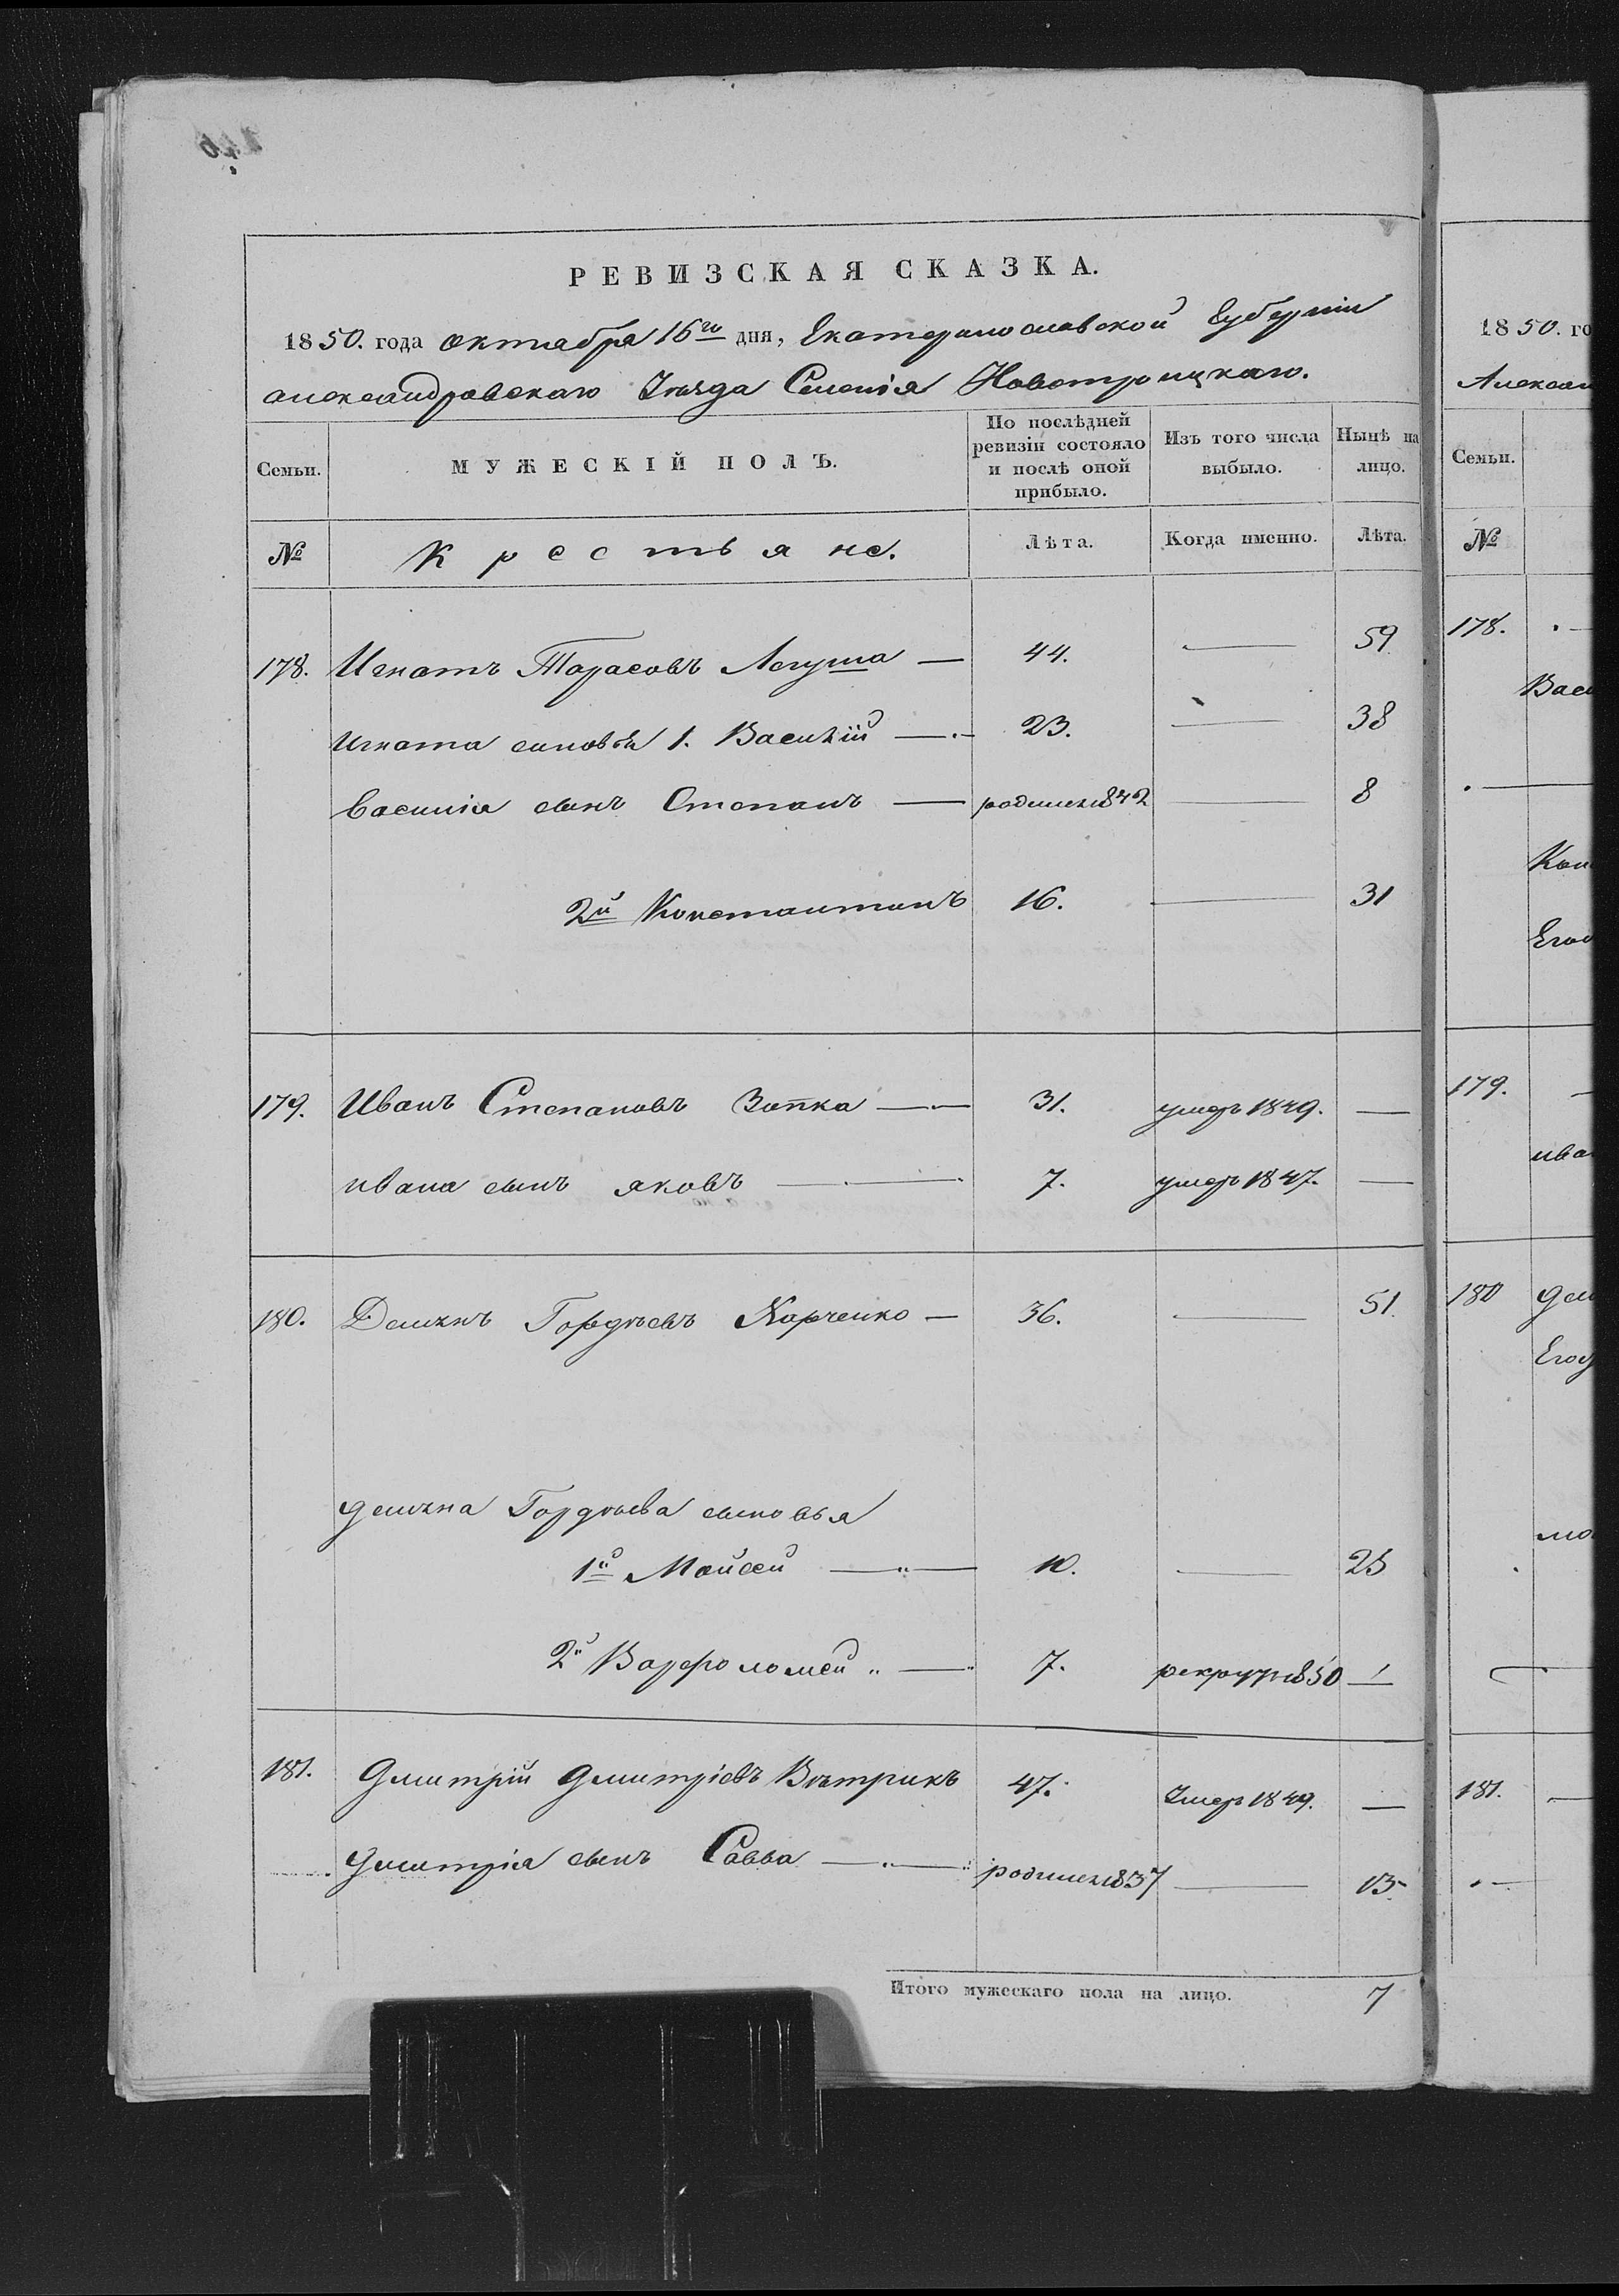 РЕВИЗСКАЯ СКАЗКА.
1850. года октября 16го дня, Екатеринославской Губерніи
александровскаго Уѣзда Селенія Новотроицкаго.
Семьи.
МУЖЕСКІЙ ПОЛЪ.
По послѣдней ревизіи состояло и послѣ оной прибыло.
Изъ того числа выбыло.
Нынѣ на лицо.
№ Крестьяне. Лѣта. Когда именно. Лѣта.
178. Игнатъ Тарасовъ — 44. — 59
Игната сыновья 1. Василій — 23. — 38
Василія сынъ Степанъ — родился 1842 — 8
2й Константинъ 16. — 31
179. Иванъ Степановъ Запка — 31. умеръ 1849. —
ивана сынъ яковъ — 7. умеръ 1847. —
180. Демянъ Гордѣевъ Харченко — 36. — 51.
демяна Гордѣева сыновья
1й Мойсей — 10. — 25
2й Варфоломей — 7. рекрутъ 1850 —
181. Дмитрій Дмитріевъ Вѣтрикъ 47. Умеръ 1849. —
Дмитрія сынъ Савва — родился 1837 — 13.
Итого мужескаго пола на лицо. 7
1850. го
Алексан
Семьи.
№
178.
Васи
Кон
Егод
179.
ива
180 дем
Егод
мо
181.